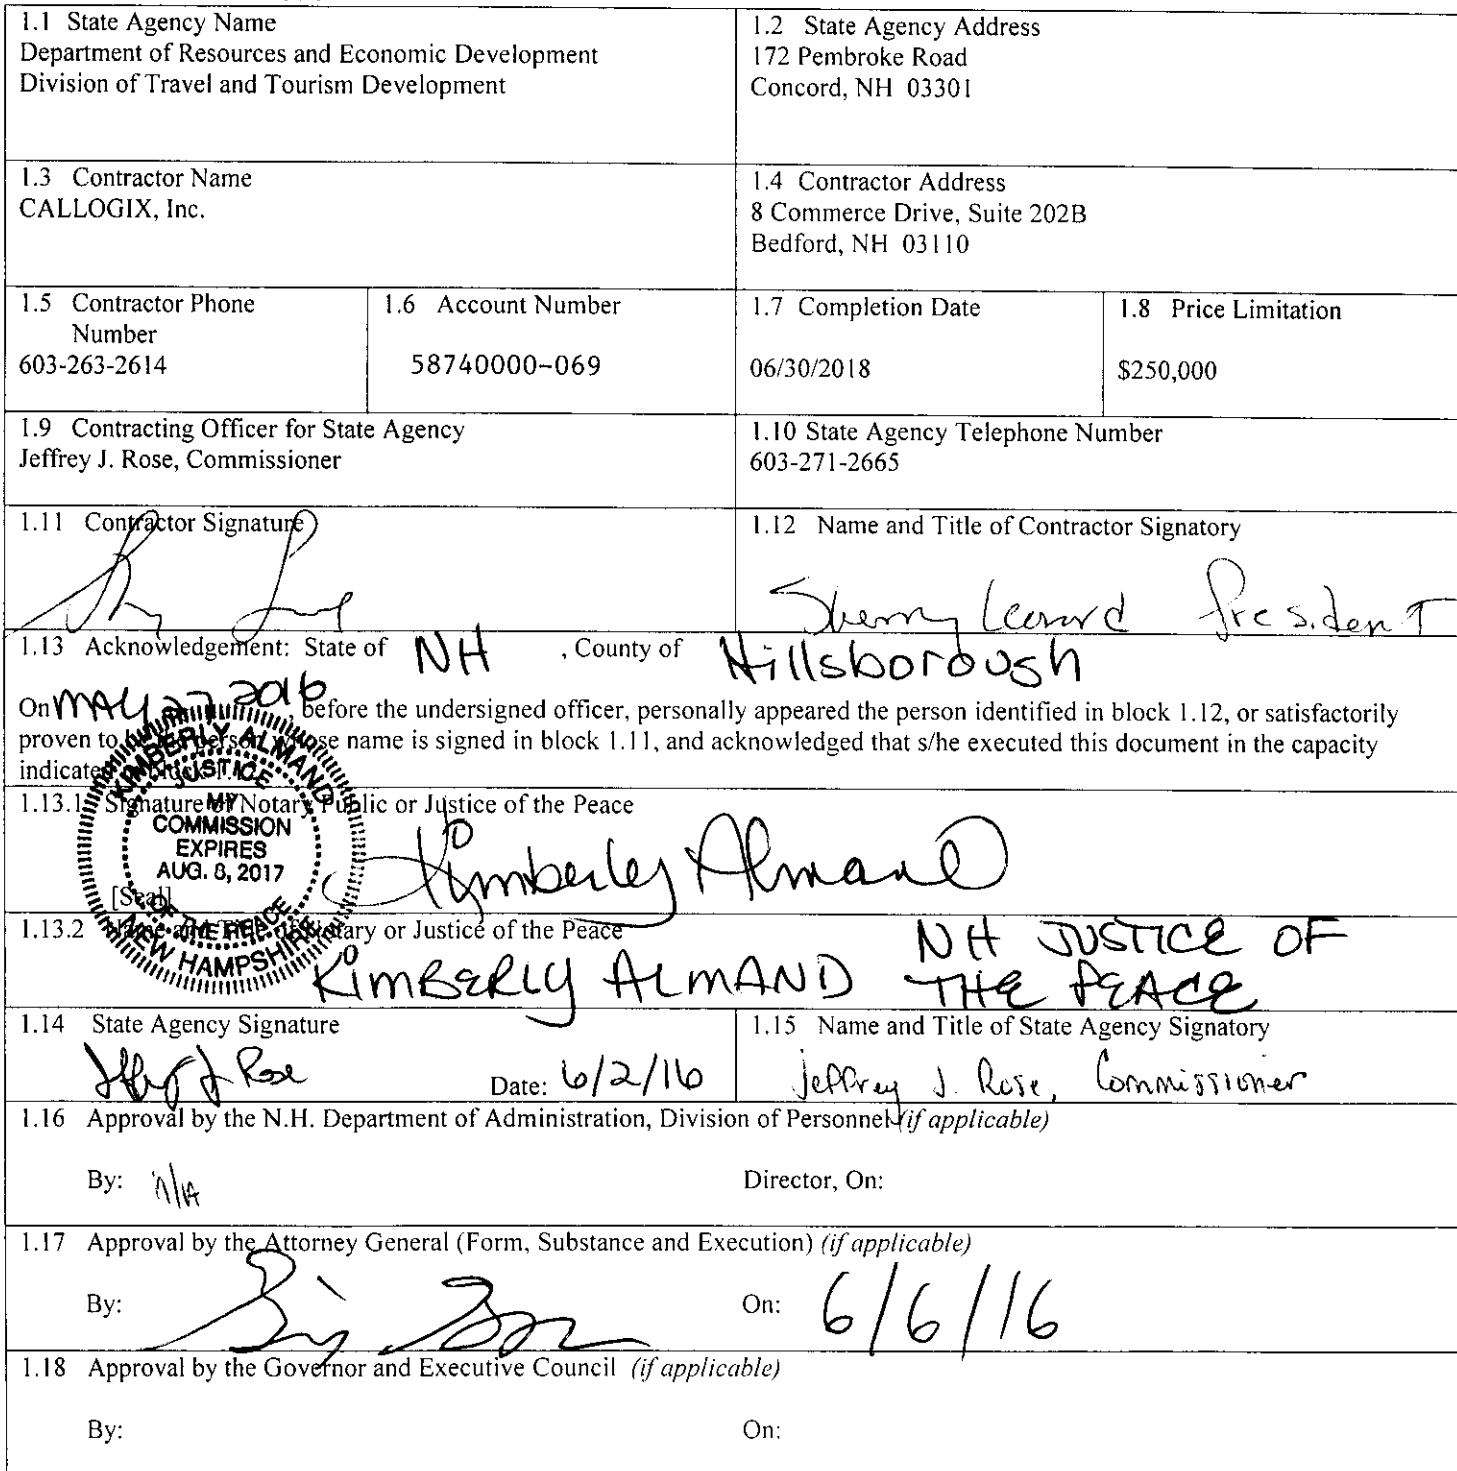 1.1 State Agency Name
Department of Resources and Economic Development
Division of Travel and Tourism Development
1.2 State Agency Address
172 Pembroke Road
Concord, NH 03301
1.3 Contractor Name
CALLOGIX, Inc.
1.4 Contractor Address
8 Commerce Drive, Suite 202B
Bedford, NH 03110
1.5 Contractor Phone
Number
603-263-2614
1.6 Account Number
58740000-069
1.7 Completion Date
06/30/2018
1.8 Price Limitation
$250,000
1.9 Contracting Officer for State Agency
Jeffrey J. Rose, Commissioner
1.10 State Agency Telephone Number
603-271-2665
1.11 Contractor Signature
1.12 Name and Title of Contractor Signatory
Sherry Leonard President
1.13 Acknowledgement: State of NH , County of Hillsborough
On MAY 27 2016 before the undersigned officer, personally appeared the person identified in block 1.12, or satisfactorily
proven to name is signed in block 1.11, and acknowledged that s/he executed this document in the capacity
indicated
1.13.1 Signature of Notary Public or Justice of the Peace
KIMBERLY ALMAND
JUSTICE
MY
COMMISSION
EXPIRES
AUG. 8, 2017
OF THE PEACE
NEW HAMPSHIRE
[Seal]
Kimberley Almand
1.13.2 Name and Title of Notary or Justice of the Peace
KIMBERLY ALMAND NH JUSTICE OF
THE PEACE
1.14 State Agency Signature
Jeffrey J Rose Date: 6/2/16
1.15 Name and Title of State Agency Signatory
Jeffrey J. Rose, Commissioner
1.16 Approval by the N.H. Department of Administration, Division of Personnel (if applicable)
By: n/a Director, On:
1.17 Approval by the Attorney General (Form, Substance and Execution) (if applicable)
By: On: 6/6/16
1.18 Approval by the Governor and Executive Council (if applicable)
By: On: